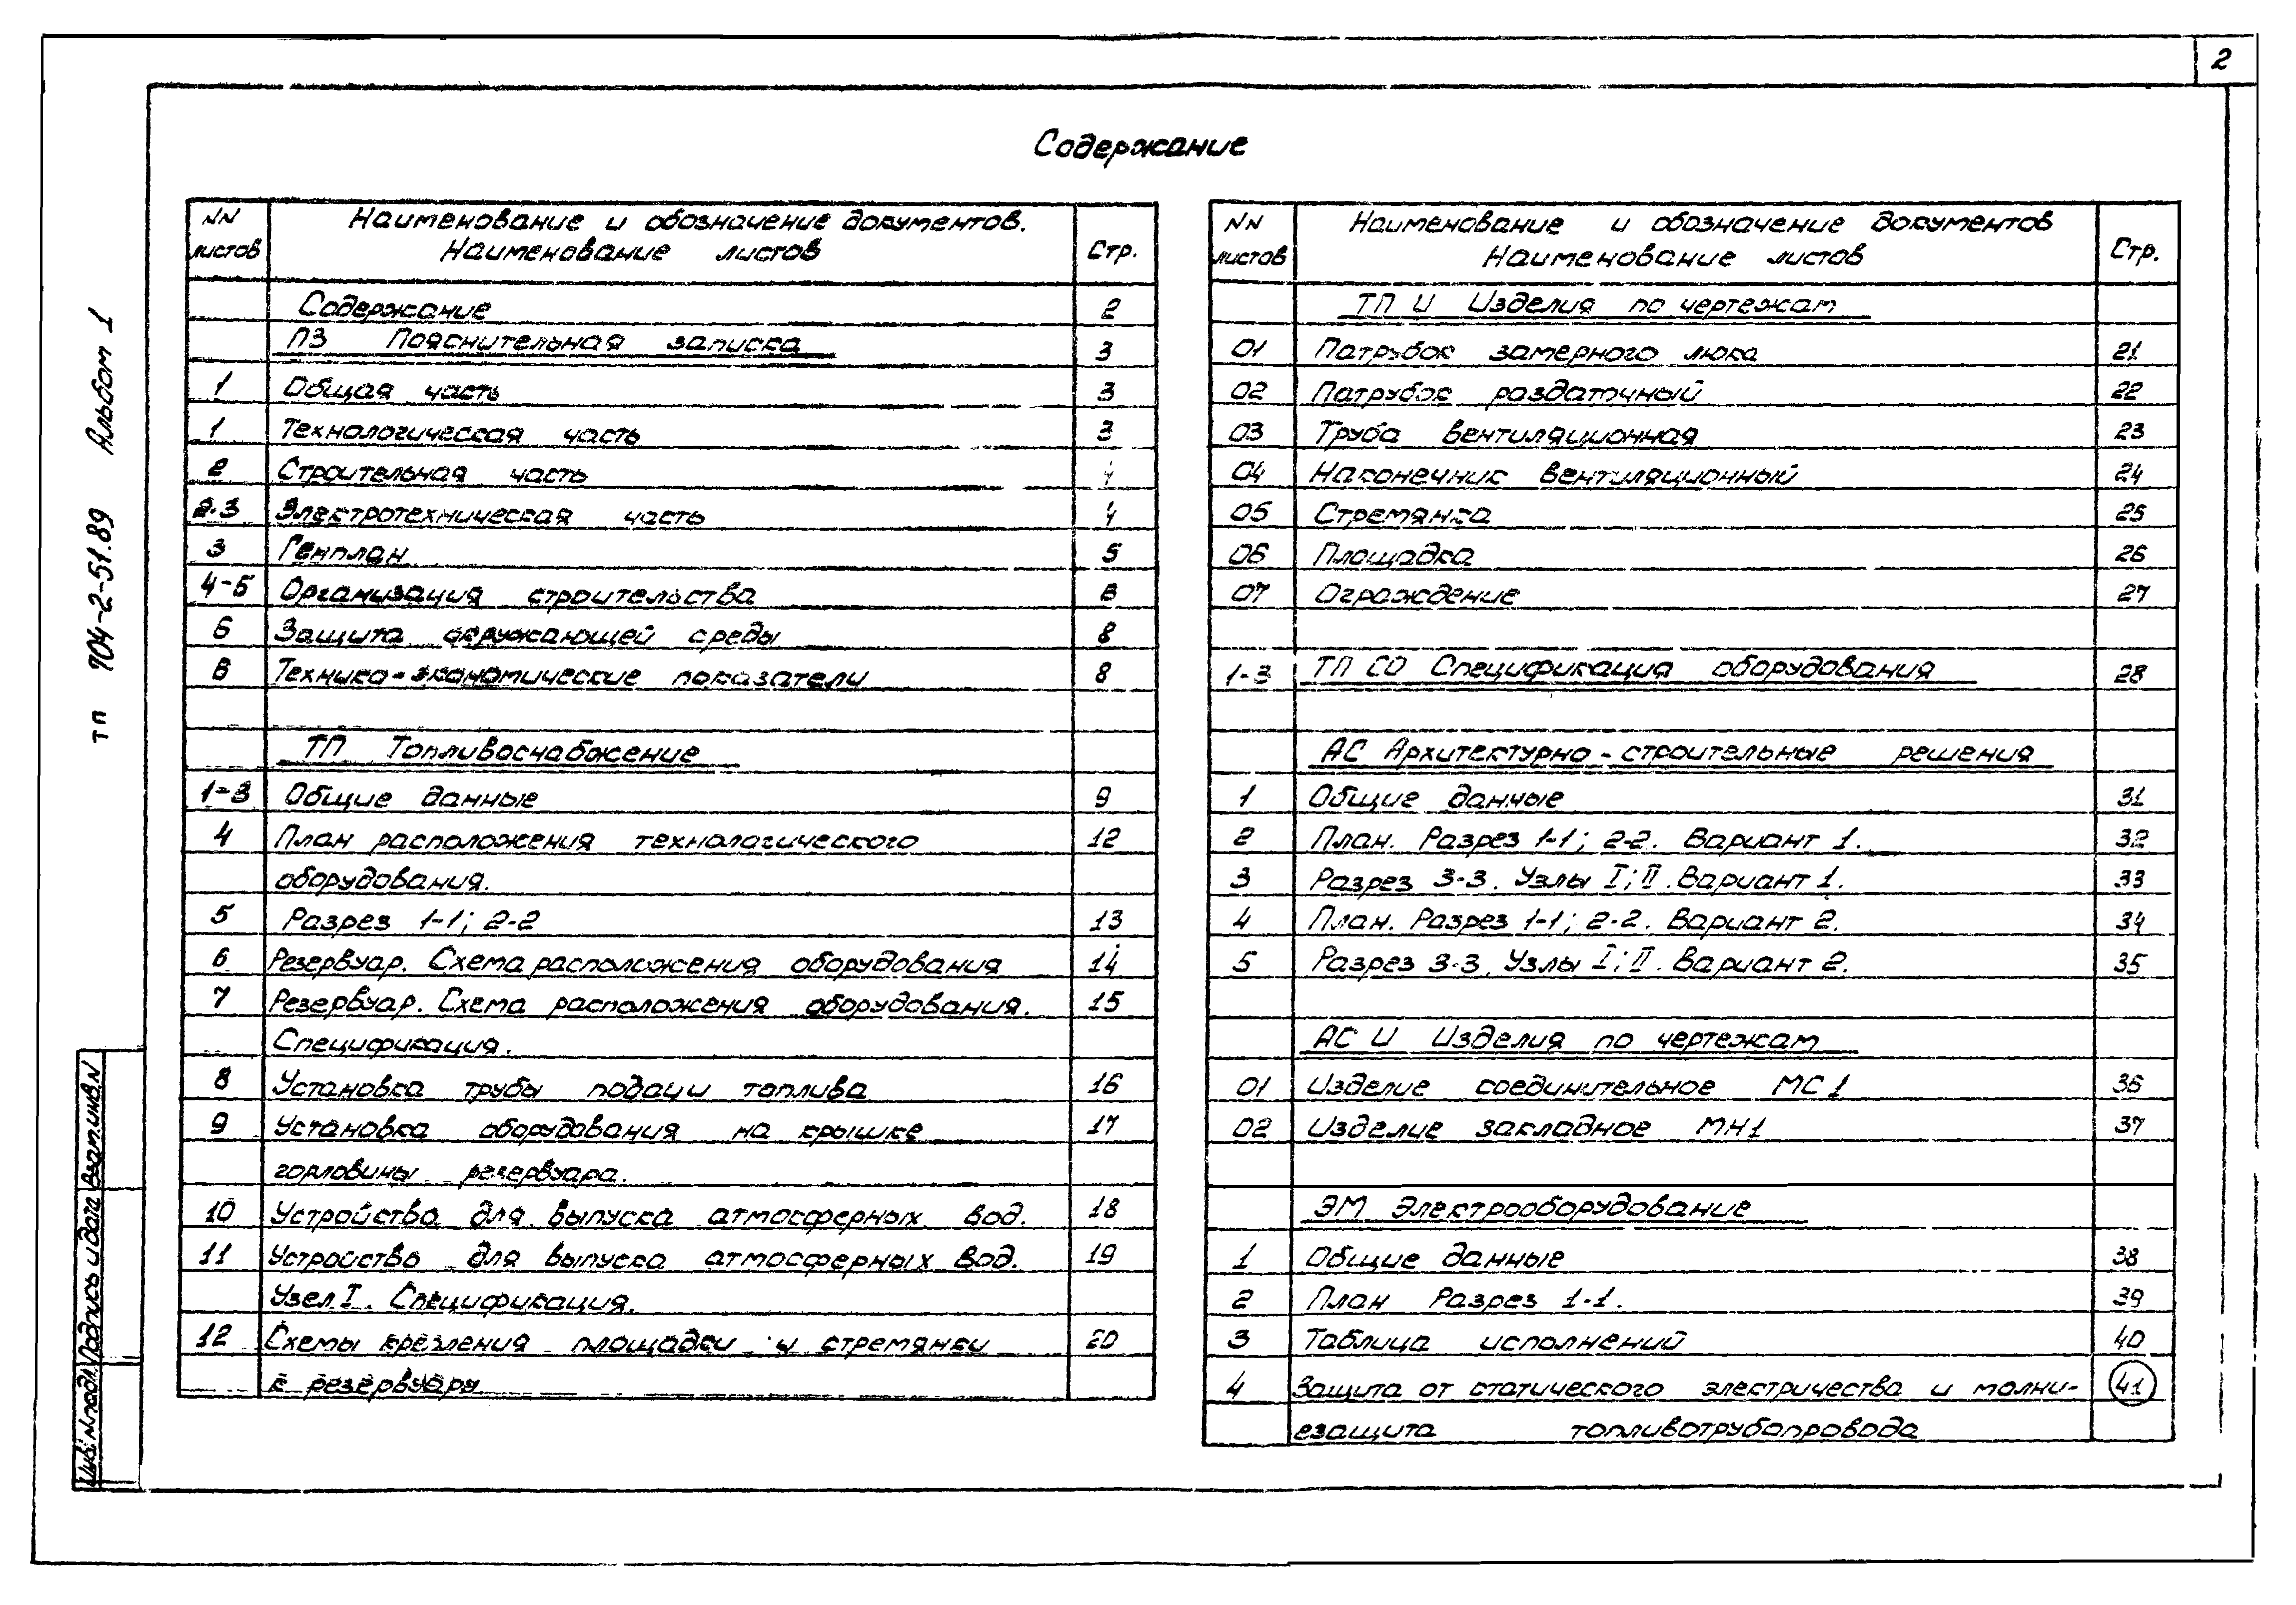 2
Содержание
NN листов Наименование и обозначение документов. Наименование листов Стр.
Содержание 2
ПЗ Пояснительная записка 3
1 Общая часть 3
1 Технологическая часть 3
2 Строительная часть 4
2-3 Электротехническая часть 4
3 Генплан 5
4-5 Организация строительства 6
6 Защита окружающей среды 8
6 Технико-экономические показатели 8
ТП Топливоснабжение
1-3 Общие данные 9
4 План расположения технологического 12
оборудования.
5 Разрез 1-1; 2-2 13
6 Резервуар. Схема расположения оборудования 14
7 Резервуар. Схема расположения оборудования. 15
Спецификация.
8 Установка трубы подачи топлива 16
9 Установка оборудования на крышке 17
горловины резервуара.
10 Устройство для выпуска атмосферных вод. 18
11 Устройство для выпуска атмосферных вод. 19
Узел I. Спецификация.
12 Схемы крепления площадки и стремянки 20
к резервуару
NN листов Наименование и обозначение документов Наименование листов Стр.
ТП И Изделия по чертежам
01 Патрубок замерного люка 21
02 Патрубок раздаточный 22
03 Труба вентиляционная 23
04 Наконечник вентиляционный 24
05 Стремянка 25
06 Площадка 26
07 Ограждение 27
1-3 ТП СО Спецификация оборудования 28
АС Архитектурно-строительные решения
1 Общие данные 31
2 План. Разрез 1-1; 2-2. Вариант 1. 32
3 Разрез 3-3. Узлы I; II. Вариант 1. 33
4 План. Разрез 1-1; 2-2. Вариант 2. 34
5 Разрез 3-3. Узлы I; II. Вариант 2. 35
АС И Изделия по чертежам
01 Изделие соединительное МС1 36
02 Изделие закладное МН1 37
ЭМ Электрооборудование
1 Общие данные 38
2 План Разрез 1-1. 39
3 Таблица исполнений 40
4 Защита от статического электричества и молни- 41
езащита топливотрубопровода
ТП 704-2-51.89 Альбом 1
Инв.N подл. Подпись и дата Взам.инв.N